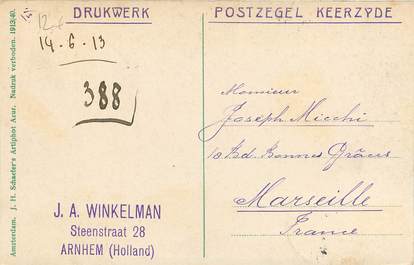 DRUKWERK
POSTZEGEL KEERZYDE
14-6-13
388
J. A. WINKELMAN
Steenstraat 28
ARNHEM (Holland)
Monsieur
Joseph Micchi
Bd. Bonnes Grâces
Marseille
France
Amsterdam. J. H. Schaefer's Artiphot Acur. Nadruk verboden. 1913/40.